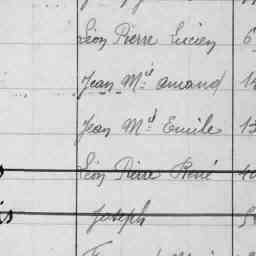 Léon Pierre Lucien 6
Jean M.el amand 1
Jean M.el Emile 13
Léon Pierre René 40
Joseph